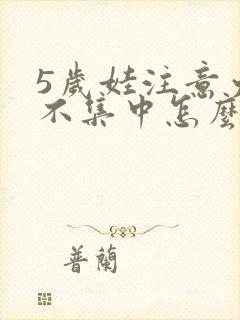 5歲娃注意力
不集中怎麼
普蘭